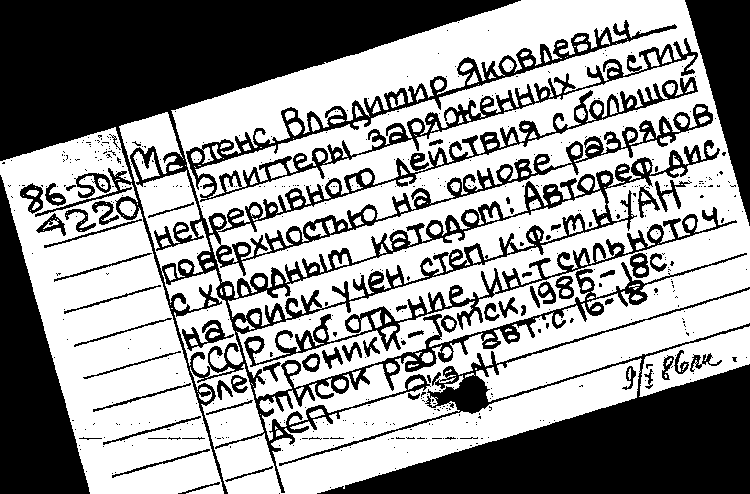 86-50к
4220
Мартенс, Владимир Яковлевич.
Эмиттеры заряженных частиц
непрерывного действия с большой
поверхностью на основе разрядов
с холодным катодом: Автореф. дис.
на соиск. учен. степ. к.ф.-т.н. /АН
СССР. Сиб. отд-ние, Ин-т сильноточ.
электроники.-Томск, 1985.-18с.
список работ авт.: с.16-18.
ДСП. Экз. №1.
9/I 86